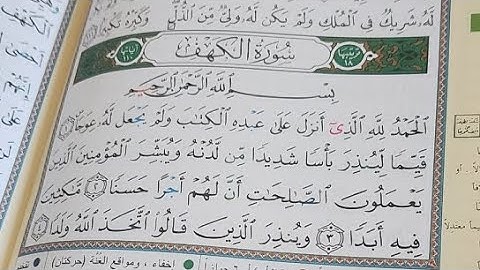 لَّهُۥ شَرِيكٌ فِى ٱلْمُلْكِ وَلَمْ يَكُن لَّهُۥ وَلِىٌّ مِّنَ ٱلذُّلِّ وَكَبِّرْهُ تَكْبِيرًۢا
ترتيبها ١٨ سُورَةُ الكَهْفِ آياتها ١١٠
بِسْمِ ٱللَّهِ ٱلرَّحْمَٰنِ ٱلرَّحِيمِ
ٱلْحَمْدُ لِلَّهِ ٱلَّذِىٓ أَنزَلَ عَلَىٰ عَبْدِهِ ٱلْكِتَٰبَ وَلَمْ يَجْعَل لَّهُۥ عِوَجَا ۜ ١
قَيِّمًا لِّيُنذِرَ بَأْسًا شَدِيدًا مِّن لَّدُنْهُ وَيُبَشِّرَ ٱلْمُؤْمِنِينَ ٱلَّذِينَ
يَعْمَلُونَ ٱلصَّٰلِحَٰتِ أَنَّ لَهُمْ أَجْرًا حَسَنًا ٢ مَّٰكِثِينَ
فِيهِ أَبَدًا ٣ وَيُنذِرَ ٱلَّذِينَ قَالُوا۟ ٱتَّخَذَ ٱللَّهُ وَلَدًا ٤
إخفاء، ومواقع الغنة (حركتان)